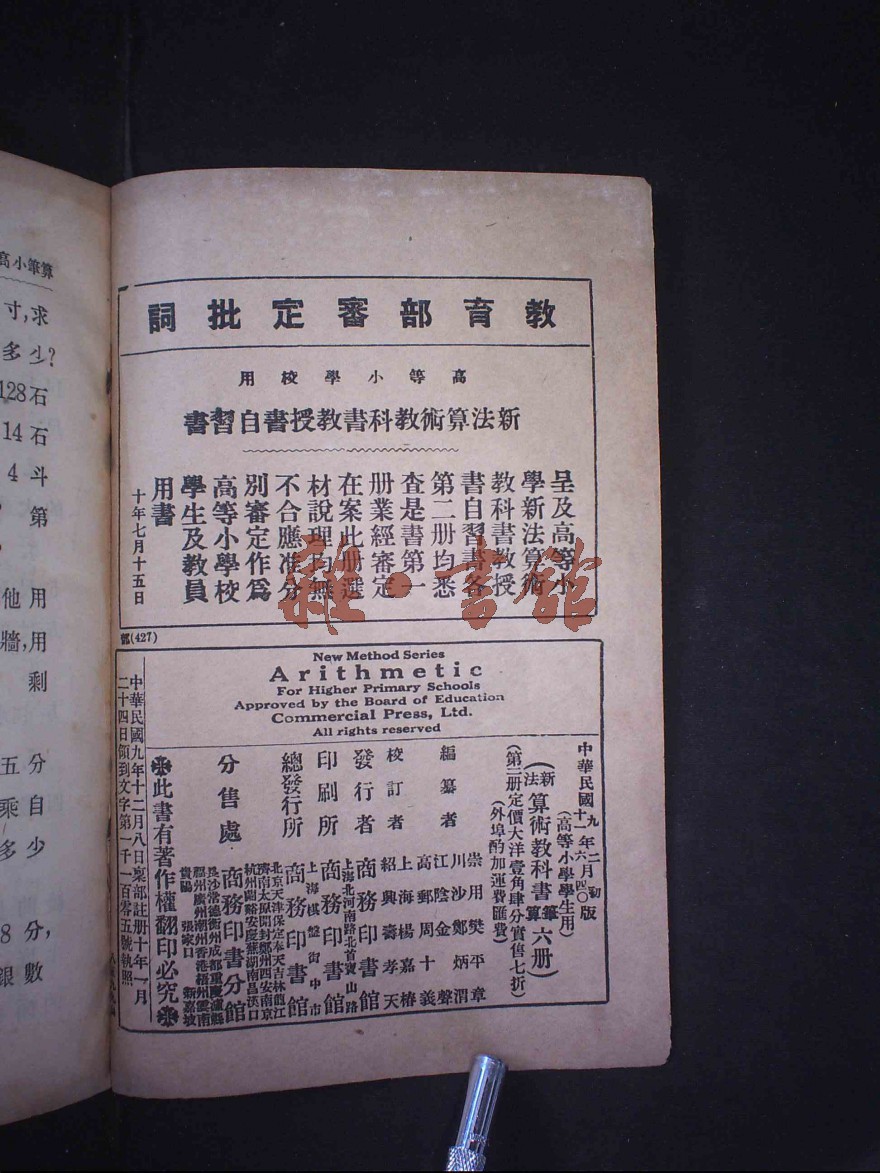 教育部審定批詞
高等小學校用
新法算術教科書教授書自習書
呈及高等小
學新法算術
教科書教授
書自習書各
第二册均悉
查是書第一
册業經審定
在案此册選
材說理均無
不合應准分
別審定作爲
高等小學校
學生及教員
用書
十年七月十五日
(427)
New Method Series
Arithmetic
For Higher Primary Schools
Approved by the Board of Education
Commercial Press, Ltd.
All rights reserved
(高等小學學生用)
(新法)算術教科書(筆算)六册)
(第二册定價大洋壹角肆分實售七折)
(外埠酌加運費匯費)
編纂者
崇明樊平章
川沙鄭炳渭
江陰金聲
高郵周十義
校訂者
上海楊嘉椿
紹興壽孝天
發行者
商務印書館
印刷所
上海北河南路北首寶山路
商務印書館
總發行所
上海棋盤街中市
商務印書館
分售處
北京天津保定奉天吉林龍江
濟南太原開封鄭州西安南京
商務印書分館
貴陽 張家口 新嘉坡
此書有著作權翻印必究
中華民國九年十二月八日稟部註册十年一月
二十四日領到文字第一千一百零五號執照
算筆小高
寸,求
多少?
128石
14石
4斗
第
他用
牆,用
剩
五分
乘自
多少
8分,
銀數
雜·書館